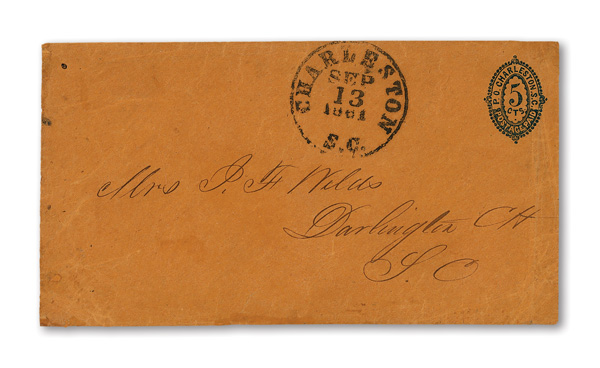 CHARLESTON
SEP
13
1861
S.C.
P.O. CHARLESTON. S.C.
5
CTS.
POSTAGE PAID
Mrs J. F Wilds
Darlington CH
S. C